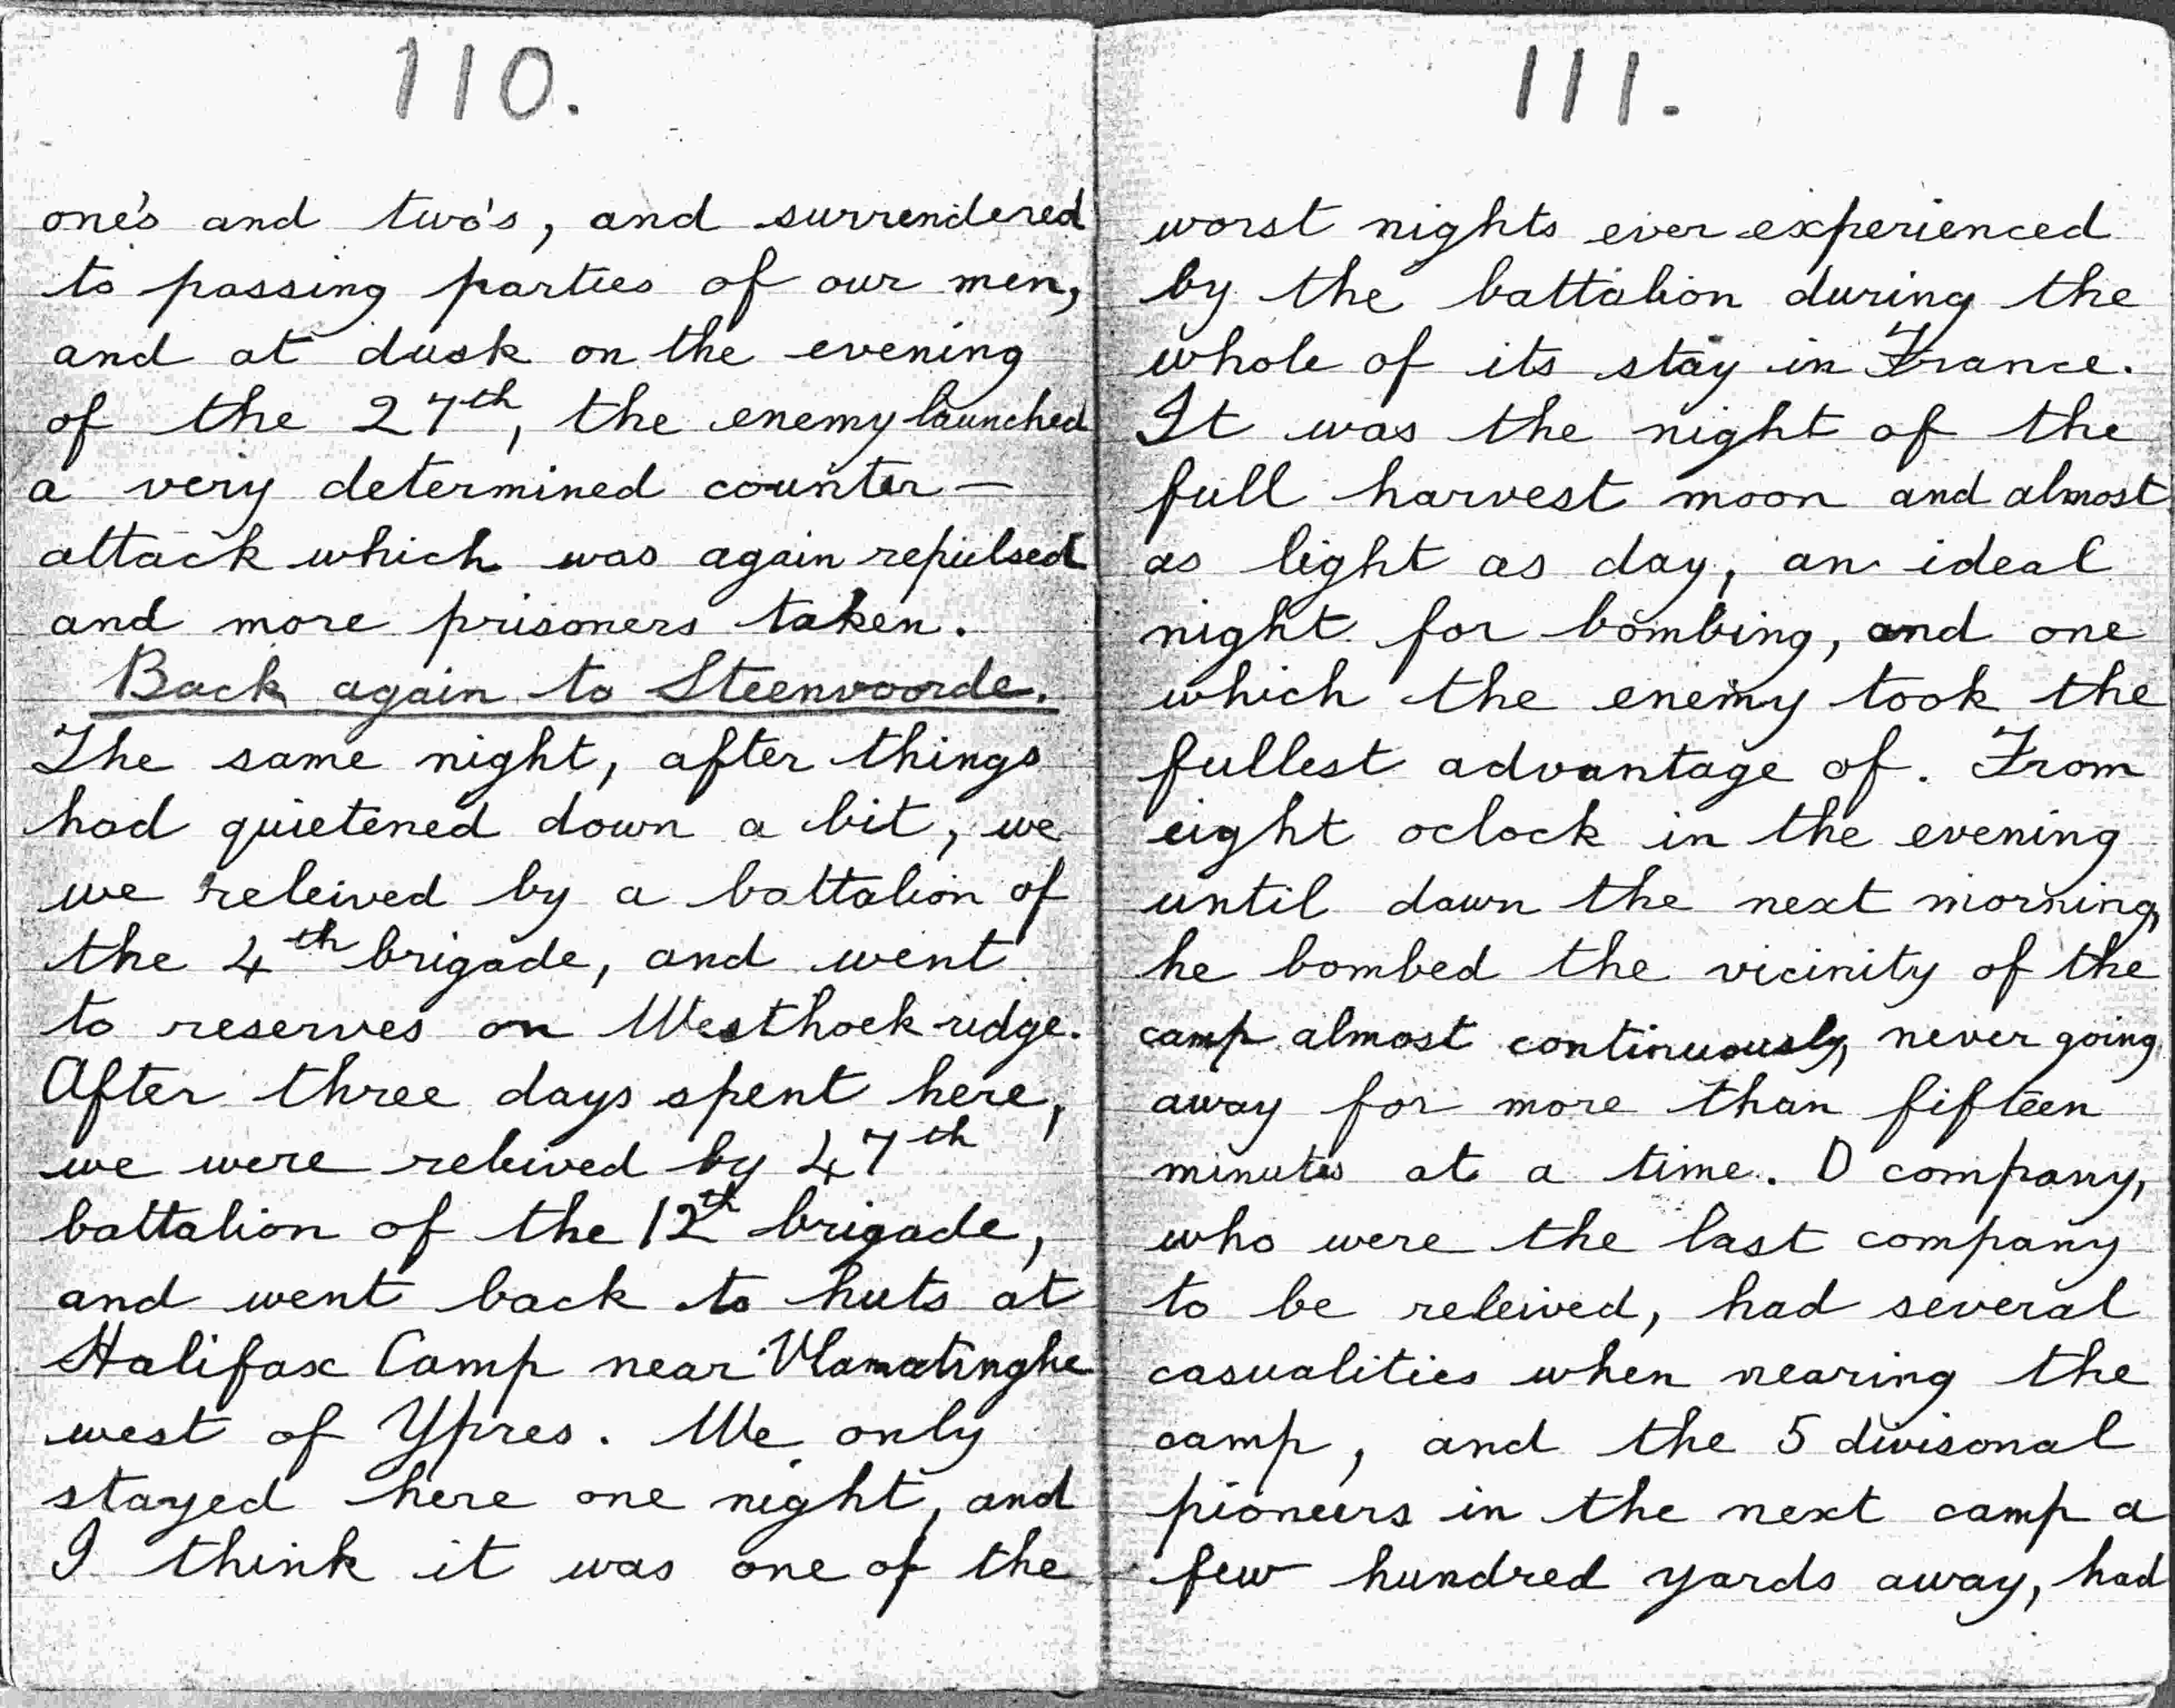 110.
one's and two's, and surrendered
to passing parties of our men,
and at dusk on the evening
of the 27th, the enemy launched
a very determined counter—
attack which was again repulsed
and more prisoners taken.
Back again to Steenvoorde.
The same night, after things
had quietened down a bit, we
we releived by a battalion of
the 4th brigade, and went
to reserves on Westhoek ridge.
After three days spent here,
we were releived by 47th
battalion of the 12th brigade,
and went back to huts at
Halifax Camp near Vlamatinghe
west of Ypres. We only
stayed here one night, and
I think it was one of the
111.
worst nights ever experienced
by the battalion during the
whole of its stay in France.
It was the night of the
full harvest moon and almost
as light as day, an ideal
night for bombing, and one
which the enemy took the
fullest advantage of. From
eight oclock in the evening
until dawn the next morning,
he bombed the vicinity of the
camp almost continuously, never going
away for more than fifteen
minutes at a time. D company,
who were the last company
to be releived, had several
casualities when nearing the
camp, and the 5 divisonal
pioneers in the next camp a
few hundred yards away, had